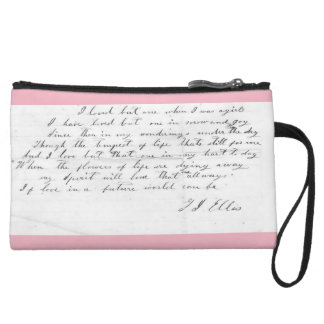 I loved but one when I was a girl
I have loved but one in sorrow and joy
Since then in my wonderings under the sky
Though the tempest of life thats still for me
And I love but that one in my hart to day
When the flowers of life are dying away
my spirit will love that allways
If love in a future world can be
T J Ellis